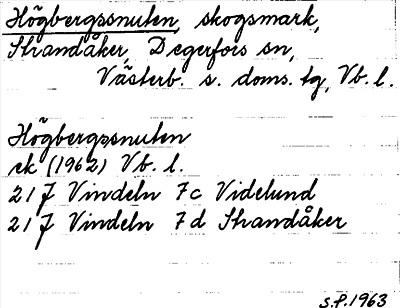 Högbergssnuten, skogsmark,
Strandåker, Degerfors sn,
Västerb. s. doms. tg, Vb. l.
Högbergssnuten
ek (1962) Vb. l.
21 J Vindeln 7c Videlund
21 J Vindeln 7d Strandåker
S.P. 1963